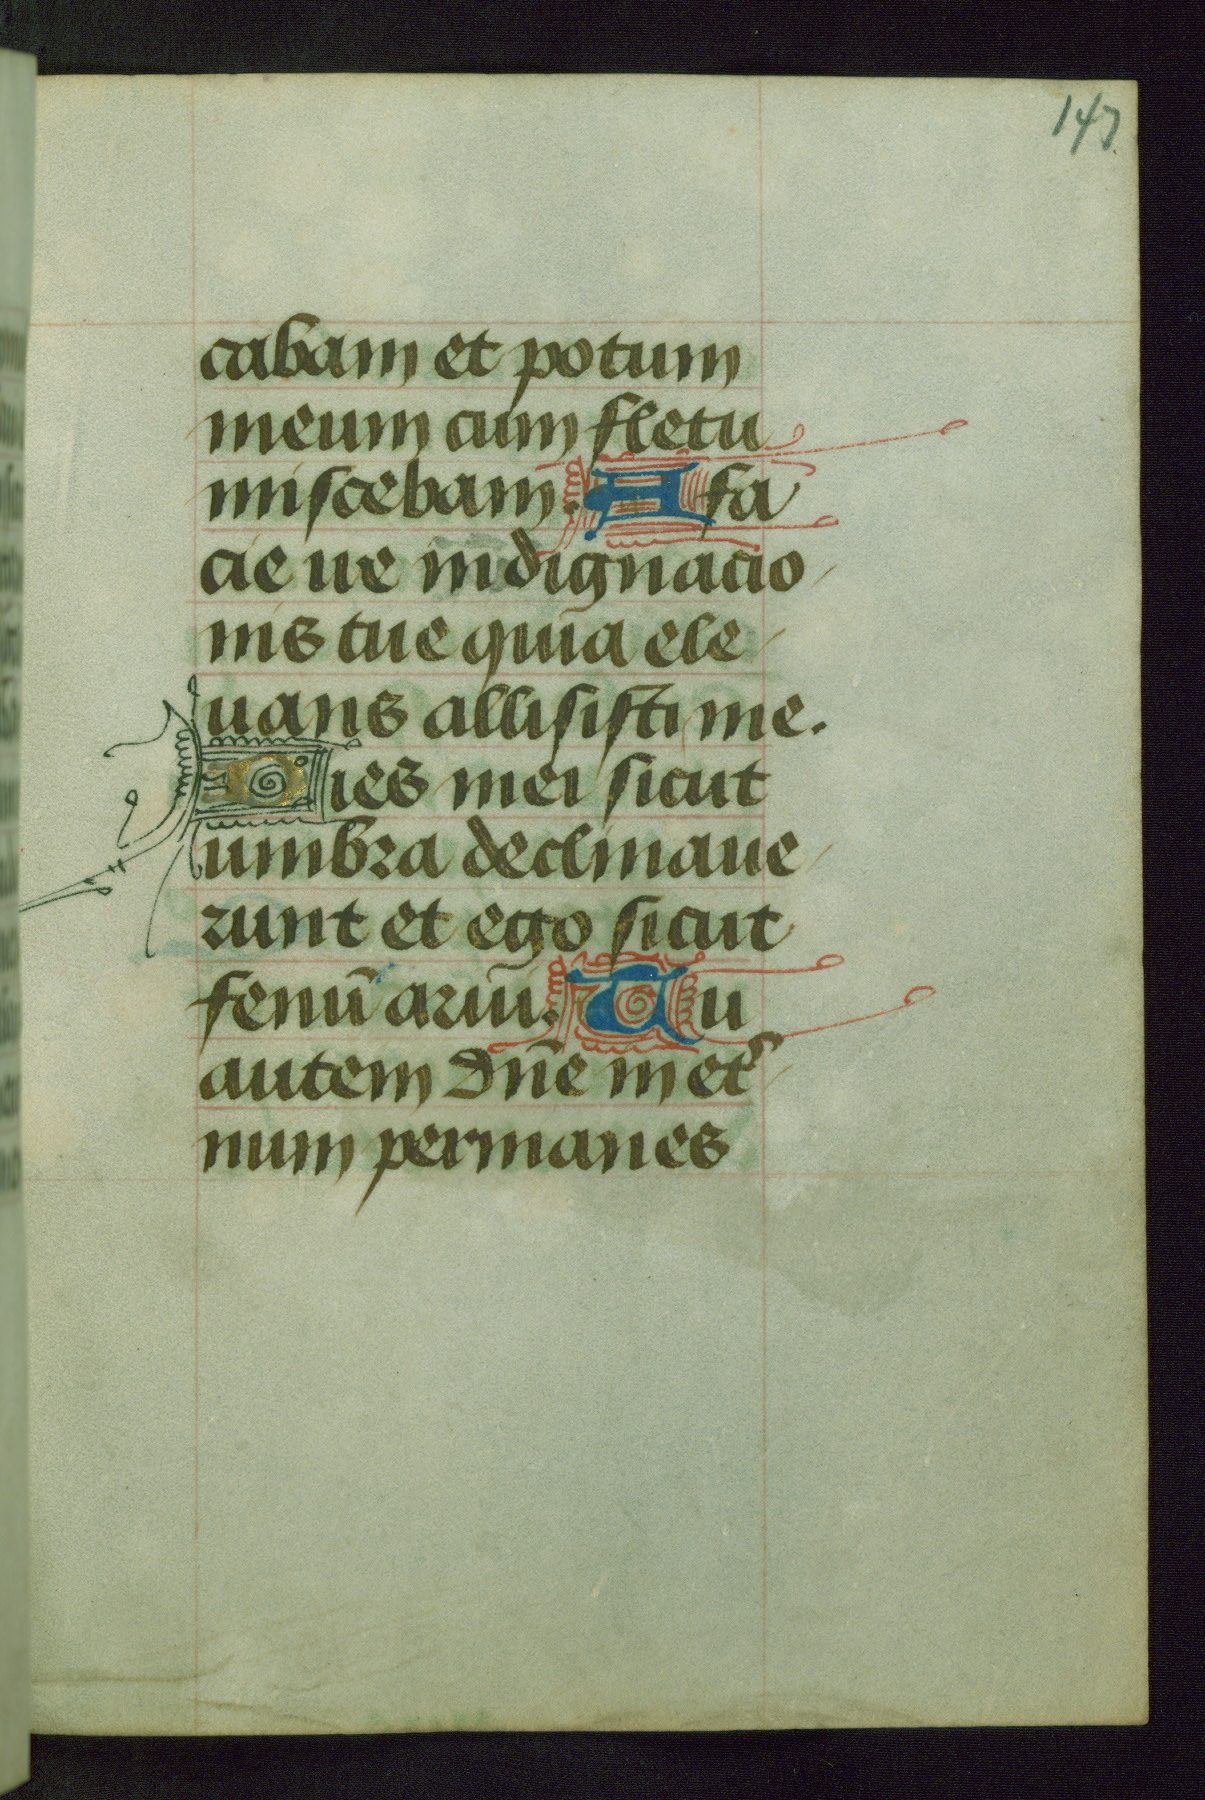 147.
cabam et potum
meum cum fletu
miscebam. A fa
cie ire indignacio
nis tue quia ele
uans allisisti me.
Dies mei sicut
umbra declinaue
runt et ego sicut
fenū arui. Tu
autem dn̄e in et̄
num permanes